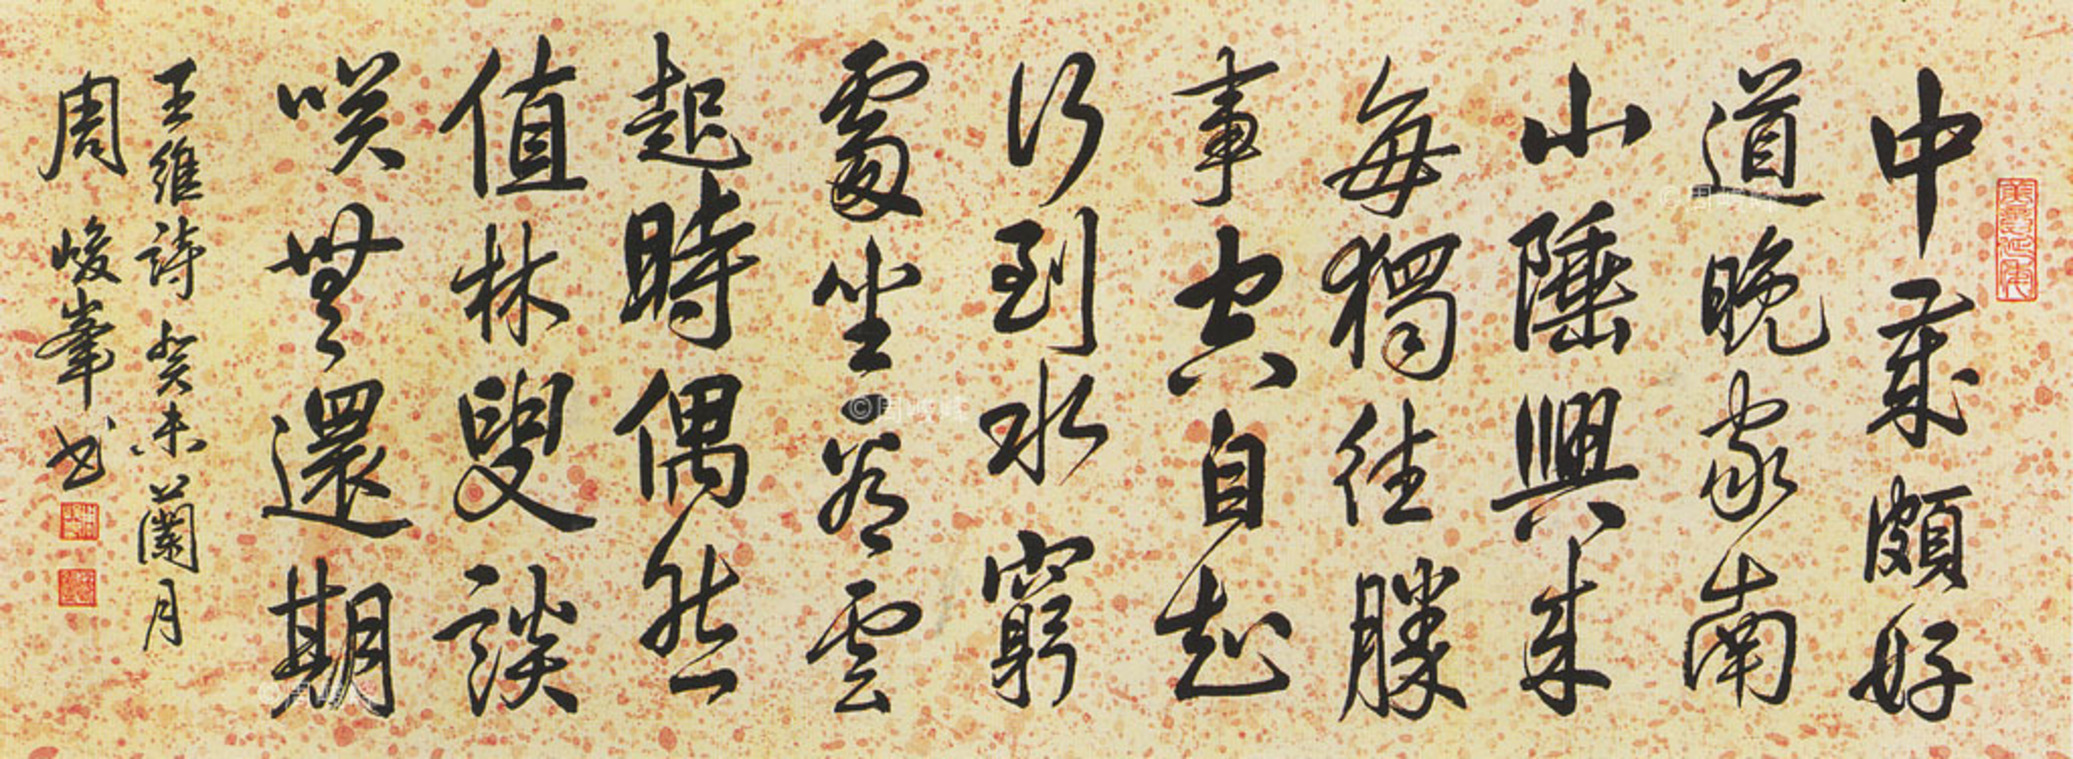 中歲頗好
道晚家南
山陲興來
每獨往勝
事空自起
行到水窮
處坐看雲
起時偶然
值林叟談
咲無還期
王維詩癸未蘭月
周峻峯书